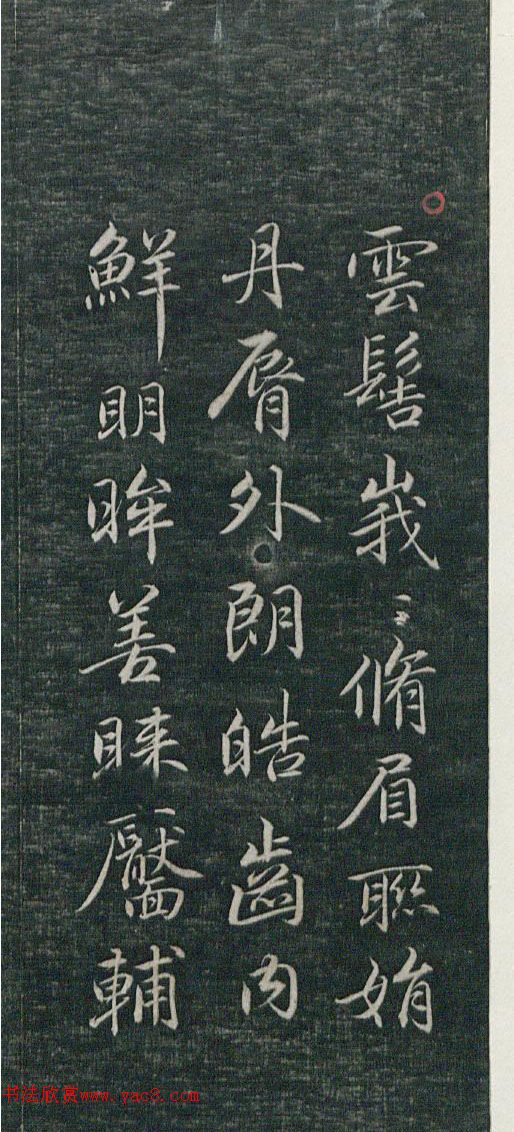 雲髻峩〻脩眉聯娟
丹脣外朗皓齒內
鮮明眸善睞靨輔
书法欣赏www.yac3.com